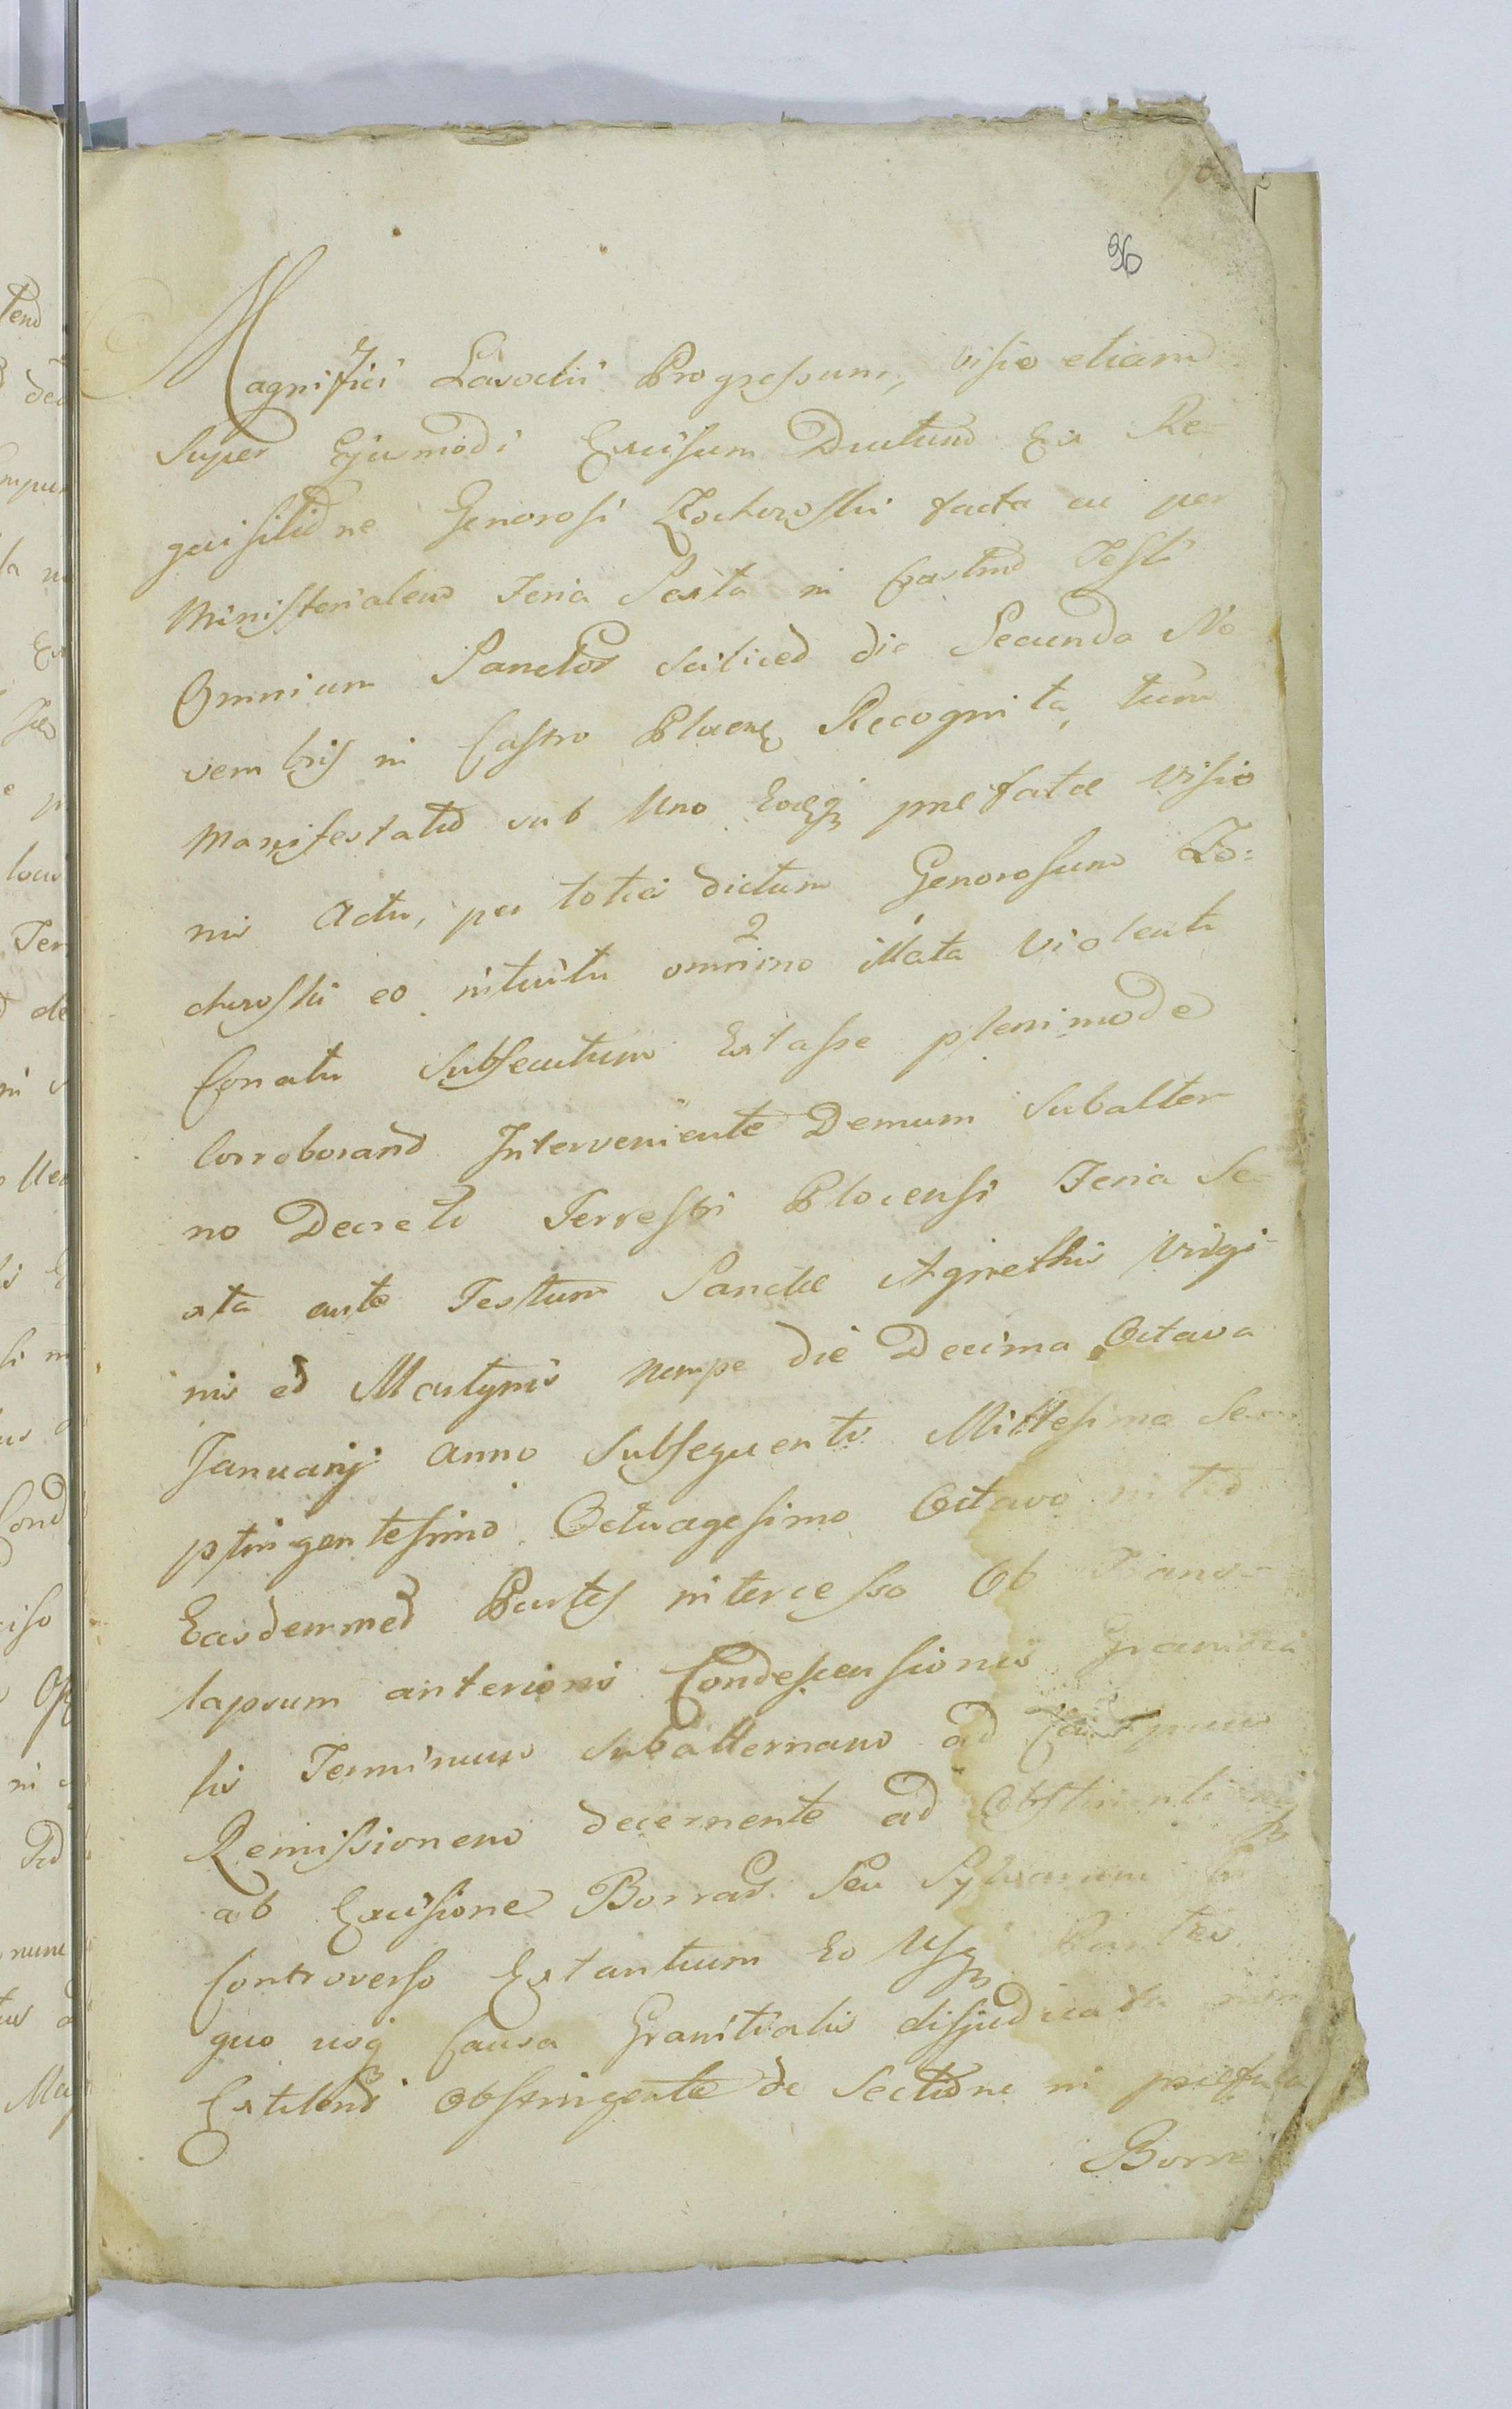 96
Magnifici Lasockii Progressum, visio etiam
super Ejusmodi Excisum Ductum Ex Re-
quisitione Generosi Zochowski facta ac per
Ministerialem Feria Sexta in Crastino Festi
Omnium Sanctor scilicet die Secunda No
vembris in Castro Plocen Recognita, tum
Manifestatio sub Uno Eodeqz præfatæ Visio
nis Actu, per toties dictum Generosum Zo:
chowski eo intuitu omnimo illata Violenti
Conatu Subsecutum Extasse plenimode
Corroborand Interveniente Demum Subalter-
no Decreto Terrestri Plocensi Feria Se-
xta ante Festum Sanctæ Agnethis Virgi-
nis et Martyris nempe die Decima Octava
Januarij Anno Subsequenti Millesimo Se-
ptingentesimo Octuagesimo Octavo inter
Easdemmet Partes intercesso Ob Trans-
lapsum anterioris Condescensionis Granicia
lis Terminum subalternam ad Campum
Remissionem decernente ad
ab Excisione Borrar Seu Sylvarum in
Controverso Extantium Eo Usqz Partes
quo usq Causa Granitialis disjudicata non
Extiterit Obstringente de Sectione in præfata
Borra